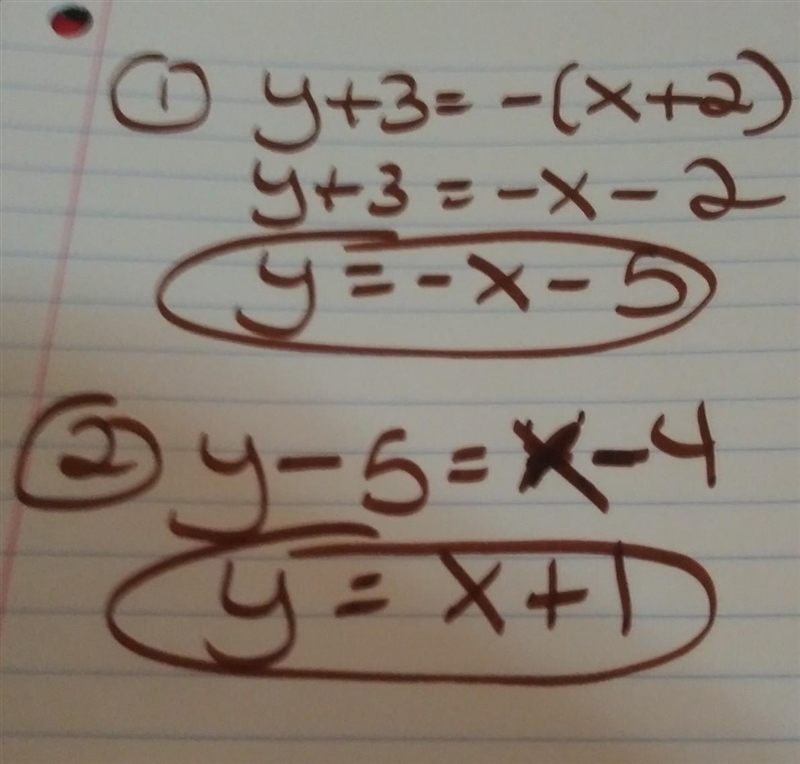 ① y+3=-(x+2)
y+3=-x-2
y=-x-5
② y-5=x-4
y=x+1